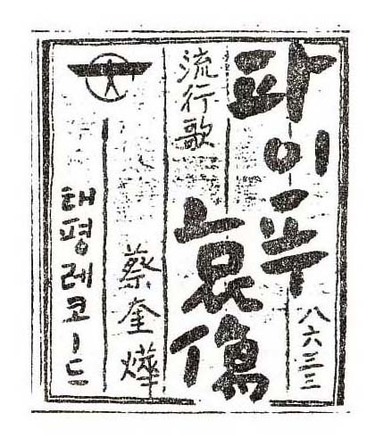 파이ー푸
哀傷
八六三三
流行歌
蔡奎燁
태평레코ー드